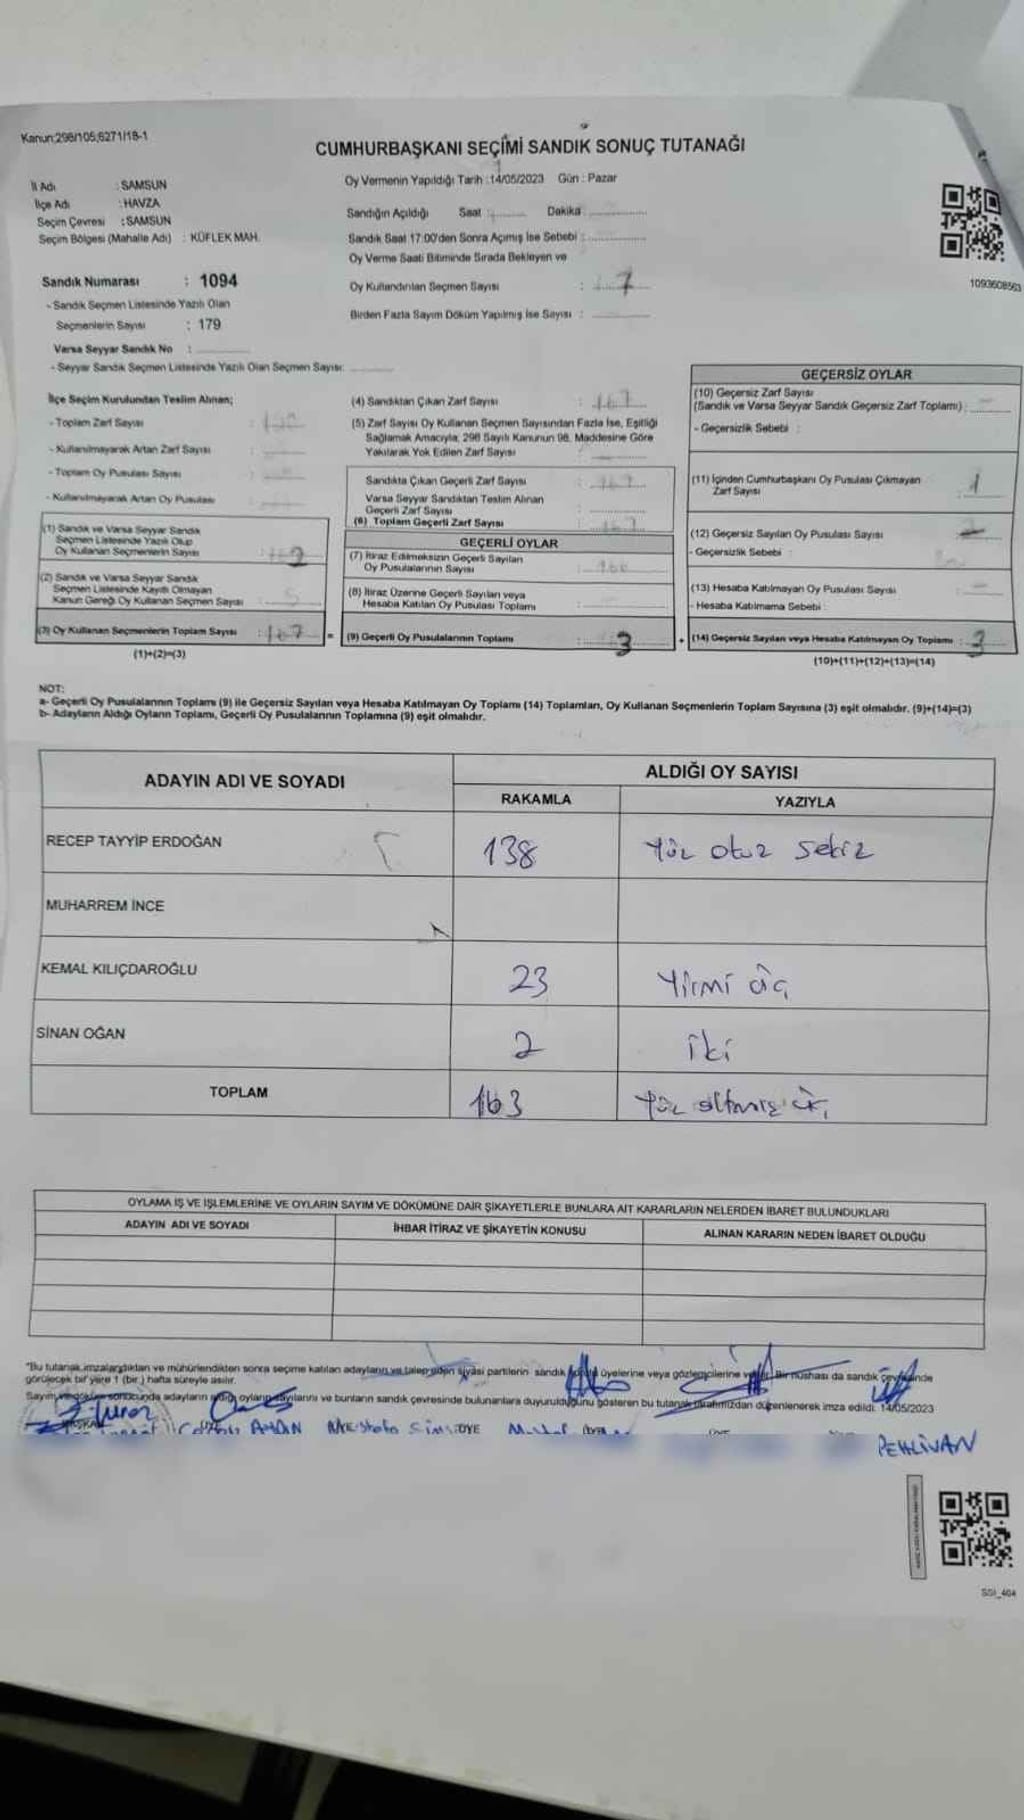 Kanun:298/105;6271/18-1
CUMHURBAŞKANI SEÇİMİ SANDIK SONUÇ TUTANAĞI
İl Adı : SAMSUN
İlçe Adı : HAVZA
Seçim Çevresi : SAMSUN
Seçim Bölgesi (Mahalle Adı) : KÜFLEK MAH.
Oy Vermenin Yapıldığı Tarih : 14/05/2023 Gün : Pazar
Sandığın Açıldığı Saat : Dakika :
Sandık Saat 17:00'den Sonra Açımış İse Sebebi :
Oy Verme Saati Bitiminde Sırada Bekleyen ve
Oy Kullandırılan Seçmen Sayısı : 7
Birden Fazla Sayım Döküm Yapılmış İse Sayısı :
1093608563
Sandık Numarası : 1094
- Sandık Seçmen Listesinde Yazılı Olan
Seçmenlerin Sayısı : 179
Varsa Seyyar Sandık No :
- Seyyar Sandık Seçmen Listesinde Yazılı Olan Seçmen Sayısı:
İlçe Seçim Kurulundan Teslim Alınan;
- Toplam Zarf Sayısı :
- Kullanılmayarak Artan Zarf Sayısı :
- Toplam Oy Pusulası Sayısı :
- Kullanılmayarak Artan Oy Pusulası :
(1) Sandık ve Varsa Seyyar Sandık
Seçmen Listesinde Yazılı Olup
Oy Kullanan Seçmenlerin Sayısı :
(2) Sandık ve Varsa Seyyar Sandık
Seçmen Listesinde Kayıtlı Olmayan
Kanun Gereği Oy Kullanan Seçmen Sayısı : 5
(3) Oy Kullanan Seçmenlerin Toplam Sayısı : 167
(1)+(2)=(3)
(4) Sandıktan Çıkan Zarf Sayısı : 167
(5) Zarf Sayısı Oy Kullanan Seçmen Sayısından Fazla İse, Eşitliği
Sağlamak Amacıyla; 298 Sayılı Kanunun 98. Maddesine Göre
Yakılarak Yok Edilen Zarf Sayısı :
Sandıkta Çıkan Geçerli Zarf Sayısı : 167
Varsa Seyyar Sandıktan Teslim Alınan
Geçerli Zarf Sayısı :
(6) Toplam Geçerli Zarf Sayısı : 167
GEÇERLİ OYLAR
(7) İtiraz Edilmeksizin Geçerli Sayılan
Oy Pusulalarının Sayısı : 166
(8) İtiraz Üzerine Geçerli Sayılan veya
Hesaba Katılan Oy Pusulası Toplamı :
(9) Geçerli Oy Pusulalarının Toplamı : 3
GEÇERSİZ OYLAR
(10) Geçersiz Zarf Sayısı
(Sandık ve Varsa Seyyar Sandık Geçersiz Zarf Toplamı) :
- Geçersizlik Sebebi :
(11) İçinden Cumhurbaşkanı Oy Pusulası Çıkmayan
Zarf Sayısı : 1
(12) Geçersiz Sayılan Oy Pusulası Sayısı :
- Geçersizlik Sebebi :
(13) Hesaba Katılmayan Oy Pusulası Sayısı :
- Hesaba Katılmama Sebebi :
(14) Geçersiz Sayılan veya Hesaba Katılmayan Oy Toplamı : 3
(10)+(11)+(12)+(13)=(14)
NOT:
a- Geçerli Oy Pusulalarının Toplamı (9) ile Geçersiz Sayılan veya Hesaba Katılmayan Oy Toplamı (14) Toplamları, Oy Kullanan Seçmenlerin Toplam Sayısına (3) eşit olmalıdır. (9)+(14)=(3)
b- Adayların Aldığı Oyların Toplamı, Geçerli Oy Pusulalarının Toplamına (9) eşit olmalıdır.
ADAYIN ADI VE SOYADI ALDIĞI OY SAYISI
RAKAMLA YAZIYLA
RECEP TAYYİP ERDOĞAN 138 Yüz otuz sekiz
MUHARREM İNCE
KEMAL KILIÇDAROĞLU 23 Yirmi üç
SİNAN OĞAN 2 iki
TOPLAM 163 Yüz altmış üç
OYLAMA İŞ VE İŞLEMLERİNE VE OYLARIN SAYIM VE DÖKÜMÜNE DAİR ŞİKAYETLERLE BUNLARA AİT KARARLARIN NELERDEN İBARET BULUNDUKLARI
ADAYIN ADI VE SOYADI İHBAR İTİRAZ VE ŞİKAYETİN KONUSU ALINAN KARARIN NEDEN İBARET OLDUĞU
"Bu tutanak imzalandıktan ve mühürlendikten sonra seçime katılan adayların ve talep eden siyasi partilerin sandık kurulu üyelerine veya gözlemcilerine verilir. Bir nüshası da sandık çevresinde
görülecek bir yere 1 (bir) hafta süreyle asılır.
Sayım ve döküm sonucunda adayların aldığı oyların sayılarını ve bunların sandık çevresinde bulunanlara duyurulduğunu gösteren bu tutanak tarafımızdan düzenlenerek imza edildi. 14/05/2023
ÜYE
PEHLİVAN
SSI_404